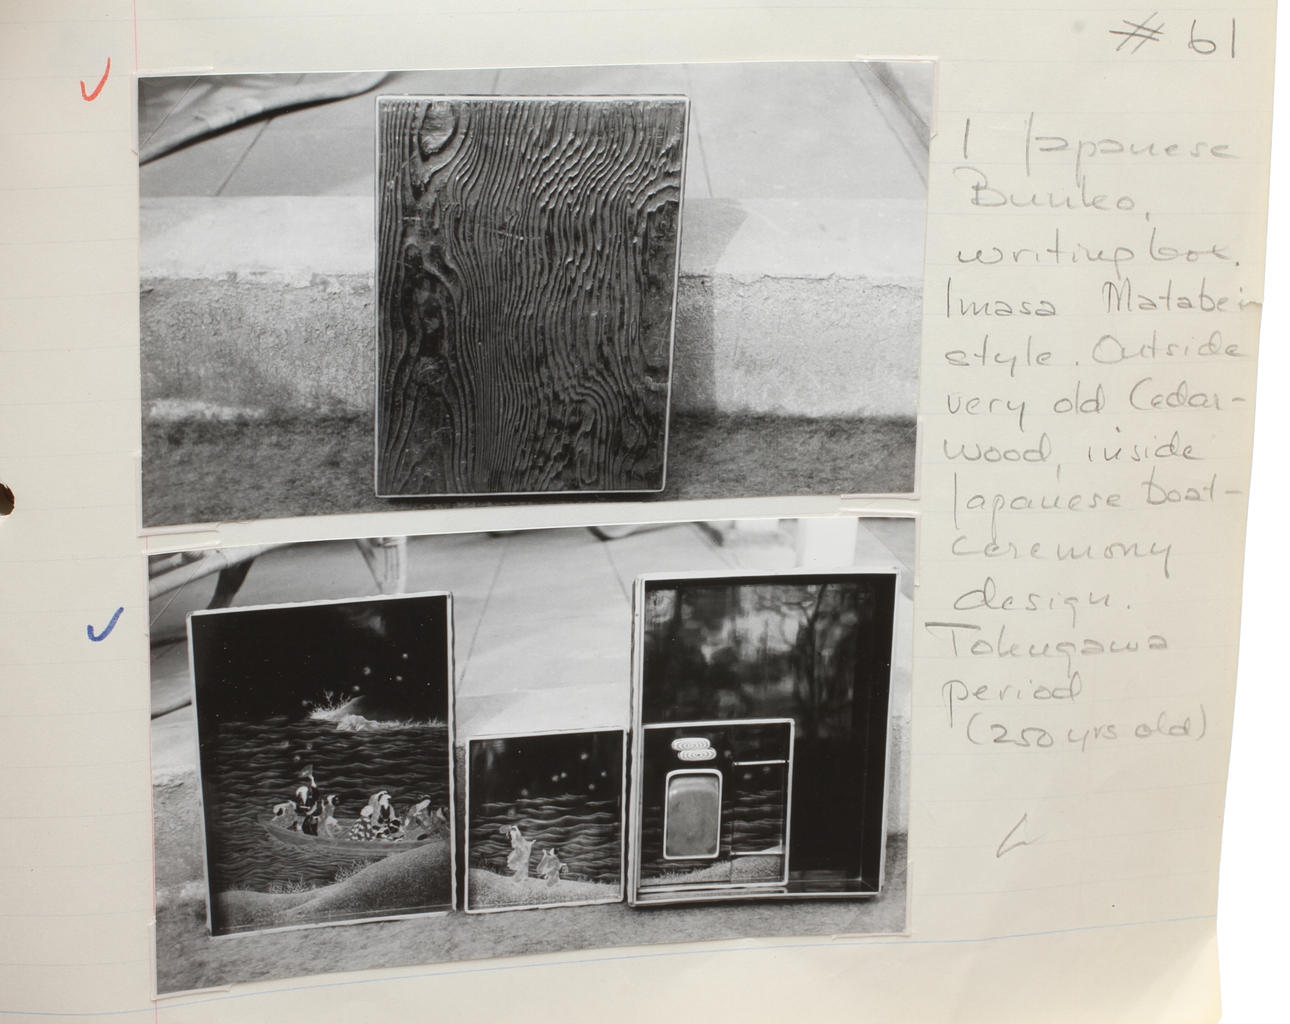 # 61
1 Japanese
Bunko,
writing box.
Imasa Matabein
style. Outside
very old Cedar-
wood, inside
Japanese boat-
ceremony
design.
Tokugawa
period
(250 yrs old)